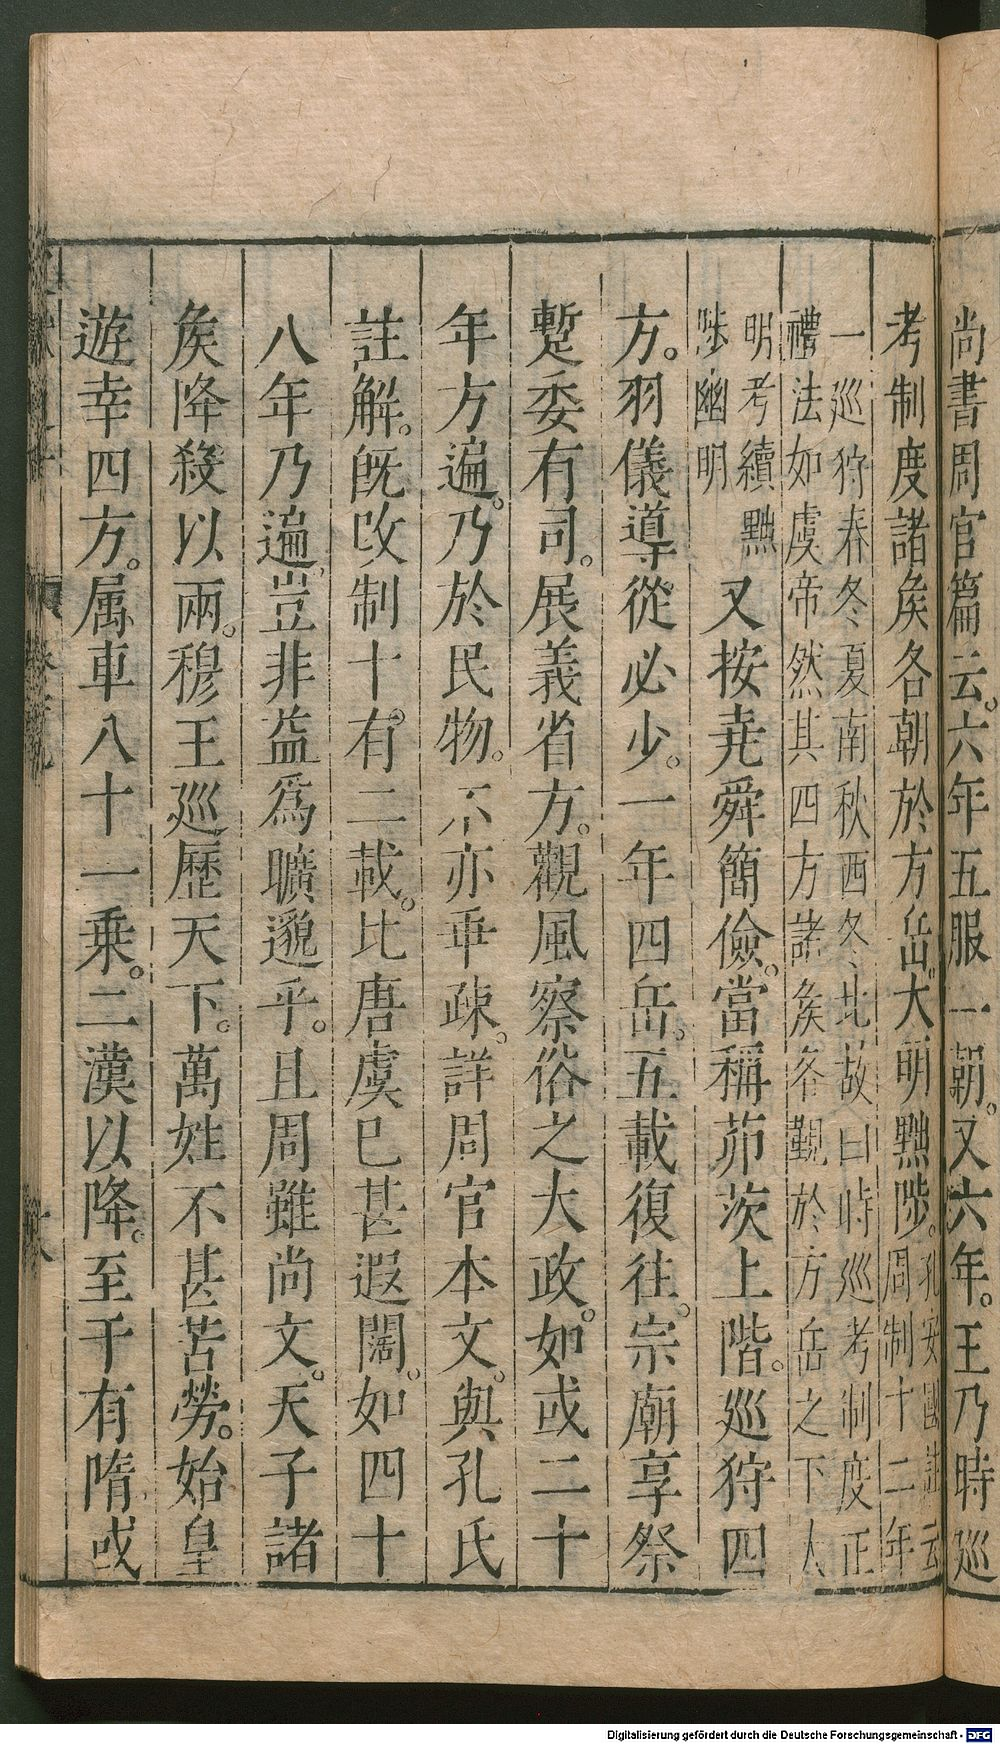 尚書周官篇云。六年五服一朝。又六年。王乃時巡
考制度諸矦各朝於方岳。大明黜陟。孔安國註云
周制十二年
一巡狩春冬夏南秋西冬冬北故曰時巡考制度正
禮法如虞帝然其四方諸矦各覲於方岳之下大
明考續黜
陟幽明
又按尭舜簡儉。當稱茆茨上階。巡狩四
方。羽儀導從必少。一年四岳。五載復往。宗廟享祭
蹔委有司。展義省方。觀風察俗之大政。如或二十
年方遍。乃於民物。不亦乖疎。詳周官本文。與孔氏
註解。旣改制十。有二載。比唐虞已甚遐闊。如四十
八年乃遍。豈非益爲曠邈乎。且周雖尚文。天子諸
矦降殺以兩。穆王巡歷天下。萬姓不甚苦勞。始皇
遊幸四方。属車八十一乗。二漢以降。至于有隋。或
Digitalisierung gefördert durch die Deutsche Forschungsgemeinschaft - DFG